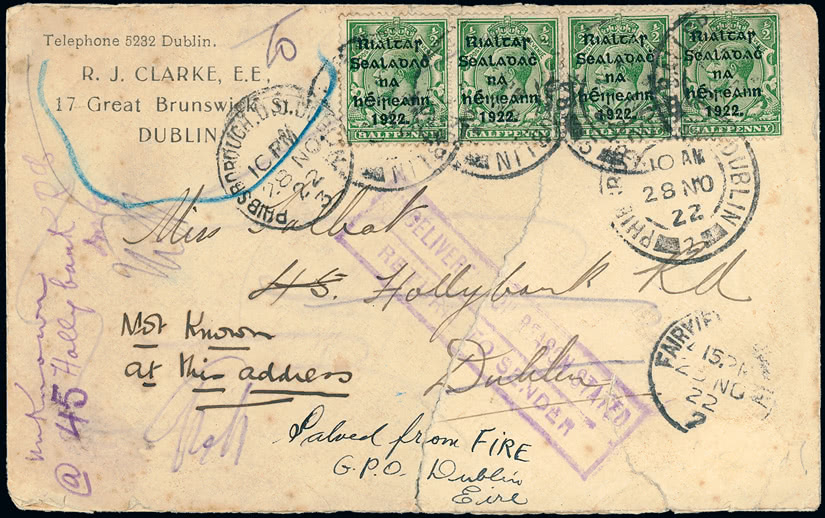 Telephone 5232 Dublin.
R. J. CLARKE, E.E.,
17 Great Brunswick St.
DUBLIN
To
½ ½
Rialtas
Sealadaċ
na
hÉireann
1922.
HALFPENNY
½ ½
Rialtas
Sealadaċ
na
hÉireann
1922.
HALFPENNY
½ ½
Rialtas
Sealadaċ
na
hÉireann
1922.
HALFPENNY
½ ½
Rialtas
Sealadaċ
na
hÉireann
1922.
HALFPENNY
PHIBSBOROUGH DUBLIN
10 PM
28 NO
22
3
PHIB DUBLIN
10 AM
28 NO
22
3
Miss Talbot
45. Hollybank Rd
Dublin
Not Known
at this address
DELIVERY
STATED
RETURN TO SENDER
FAIRVIE
2 15 PM
NO
22
2
unknown
@ 45 Hollybank Rd
Salved from FIRE
G.P.O. Dublin
Eire